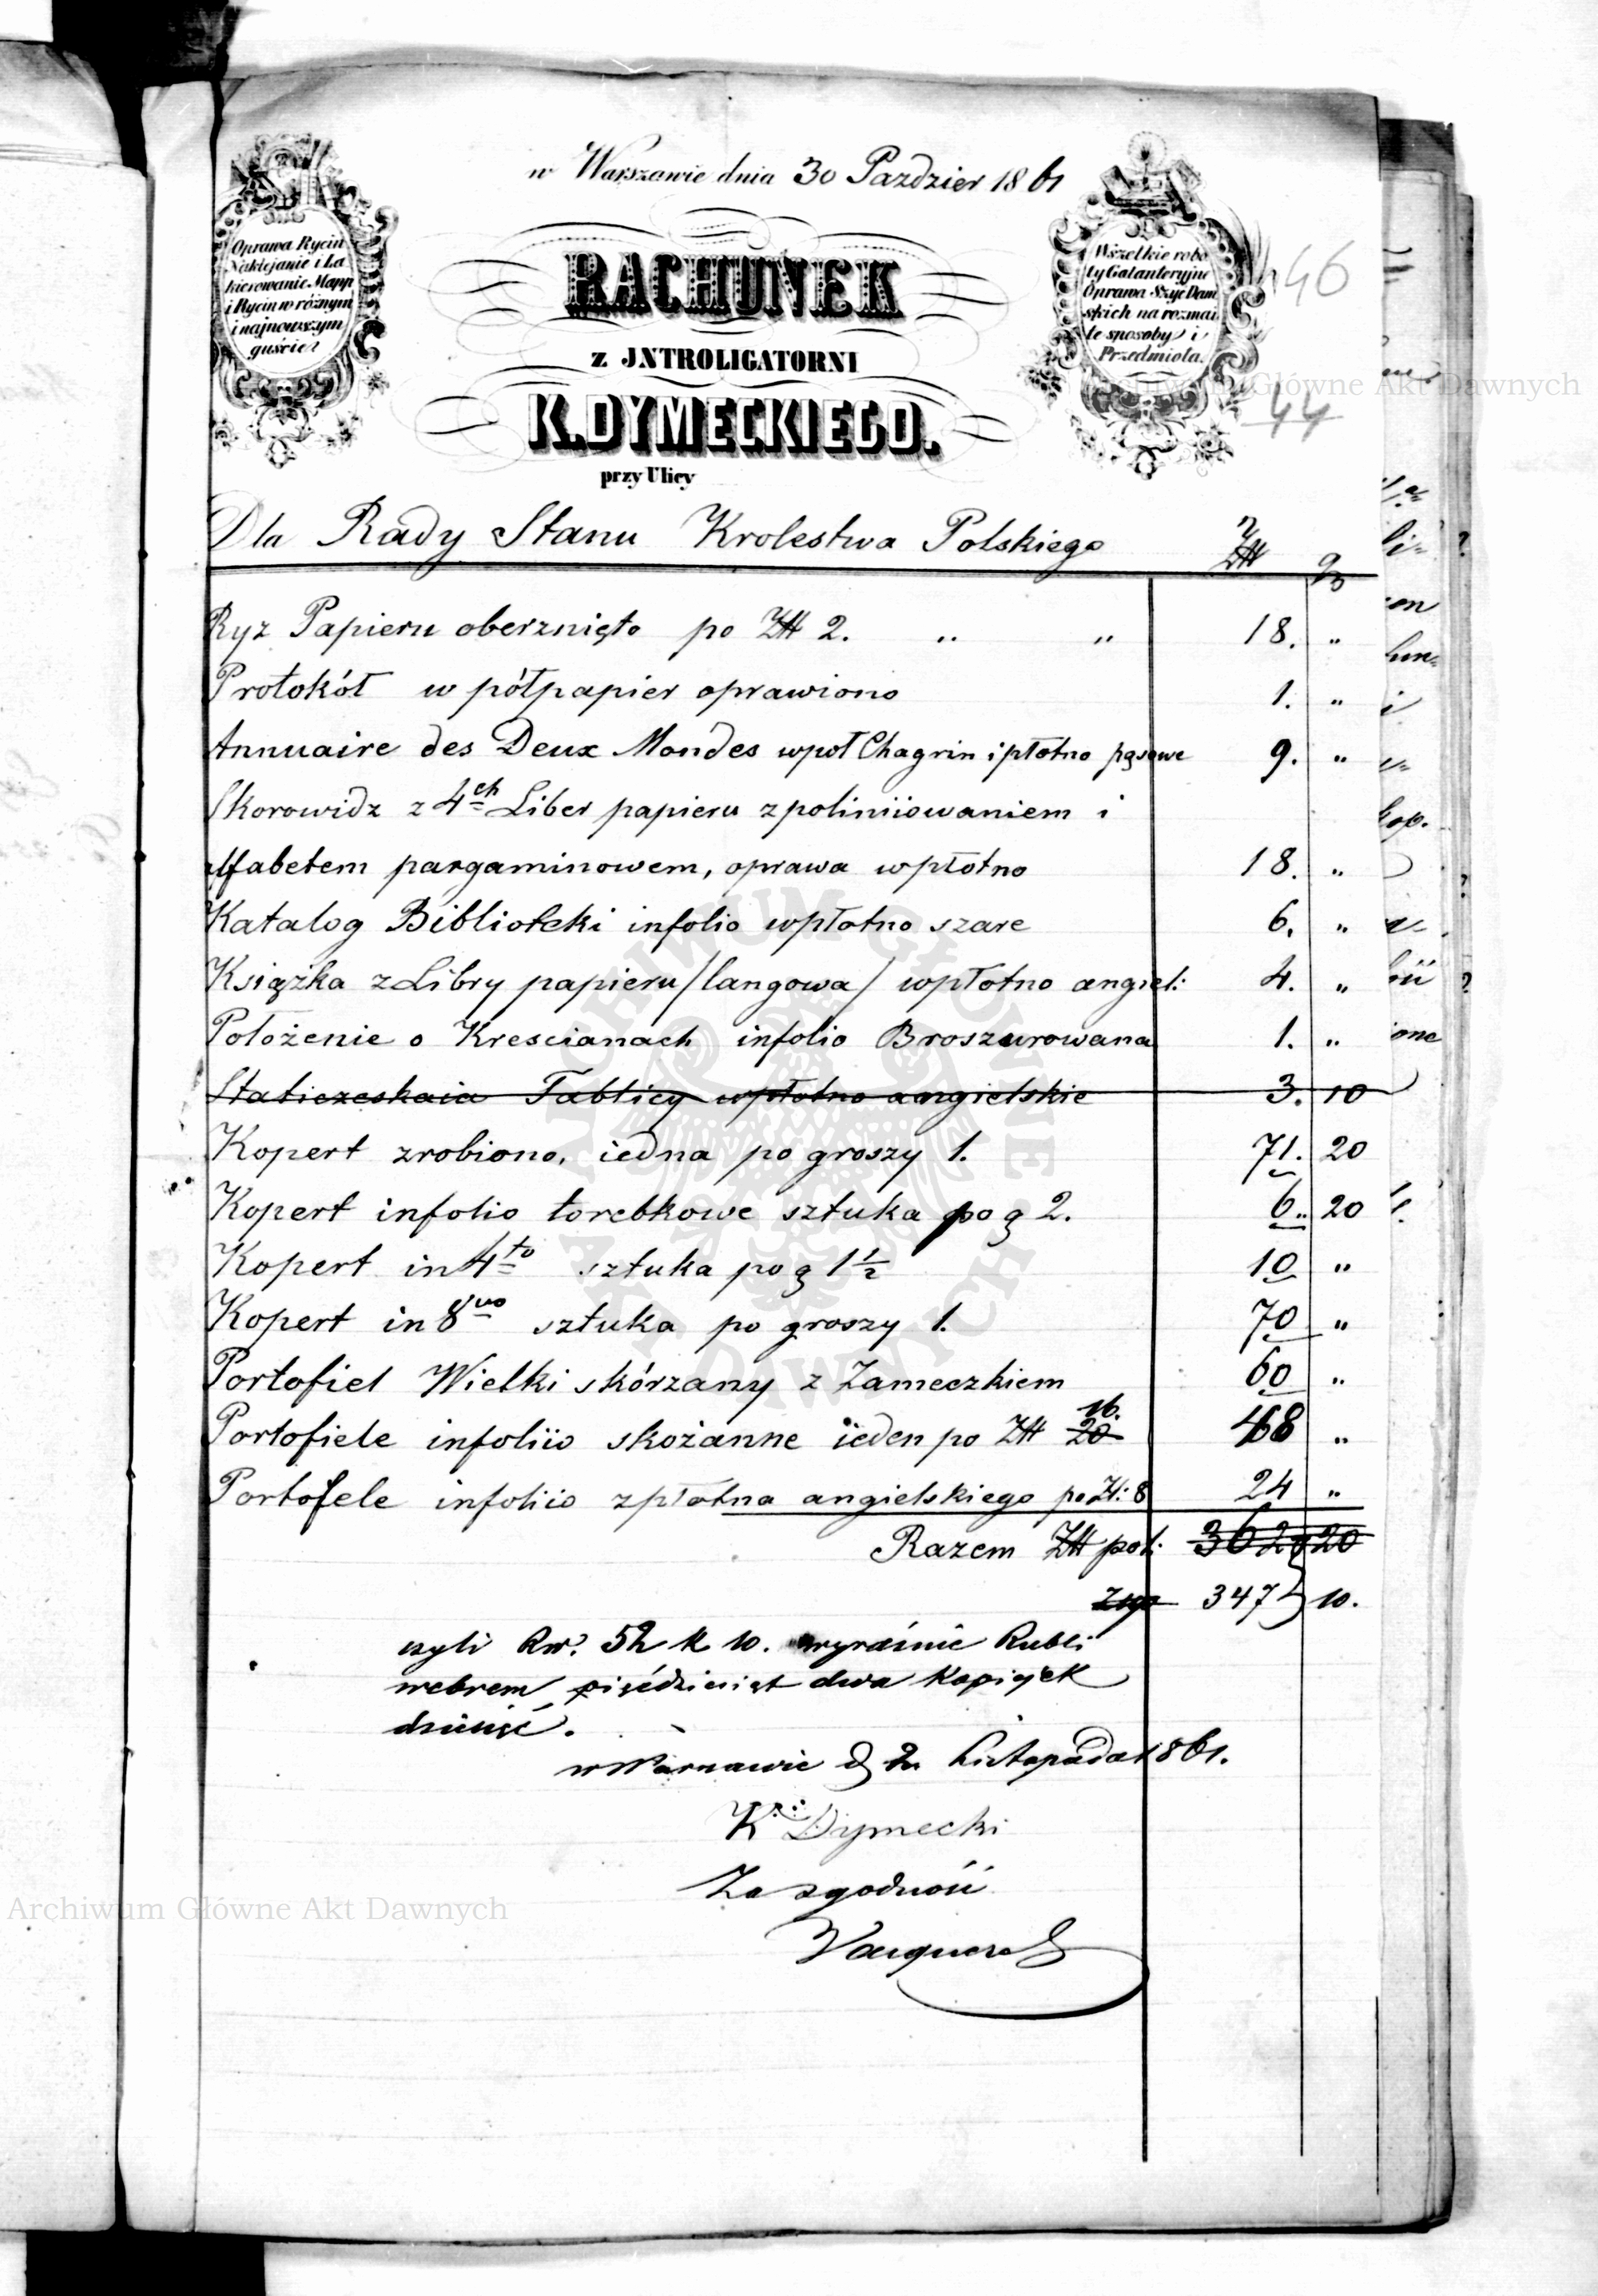 w Warszawie dnia 30 Pazdzier 1861
Oprawa Rycin
Naklejanie i La
kierowanie Mapp
i Rycin w różnym
i najnowszym
guście
Wszelkie robo
ty Galanteryjne
Oprawa Szyć Dam
skich na rozmai
te sposoby i
Przedmiota.
46
44
RACHUNEK
Z JNTROLIGATORNI
K. DYMECKIEGO.
przy Ulicy
Dla Rady Stanu Krolestwa Polskiego Zł g
Ryz Papieru oberznięto po Zł 2. „ „ 18. „
Protokół w półpapier oprawiono 1. „
Annuaire des Deux Mondes wpoł Chagrin i płotno pąsowe 9. „
Skorowidz z 4ch Liber papieru z poliniiowaniem i
alfabetem pargaminowem, oprawa wpłotno 18. „
Katalog Biblioteki infolio wpłotno szare 6. „
Książka z Libry papieru /langowa/ wpłotno angiel: 4. „
Położenie o Krescianach infolio Broszurowana 1. „
Staticzeskaia Tablicy wpłotno angielskie 3. 10
Kopert zrobiono, iedna po groszy 1. 71. 20
Kopert infolio torebkowe sztuka po g 2. 6. 20
Kopert in 4to sztuka po g 1½ 10 „
Kopert in 8vo sztuka po groszy 1. 70 „
Portofiel Wielki skórzany z Zameczkiem 60 „
16.
Portofiele infoliio skożanne ieden po Zł 20 48 „
Portofele infoliio z płotna angielskiego po Zł: 8 24 „
Razem Zł pol: 362 20
Złp 347 10.
czyli Rsr. 52 k 10. wyraźnie Rubli
srebrem pięćdziesiąt dwa Kopiejek
dziesięć.
w Warszawie d 2 Listopada 1861.
K. Dymecki
Za zgodność
Archiwum Główne Akt Dawnych
Archiwum Główne Akt Dawnych
ARCHIWUM GŁÓWNE AKT DAWNYCH